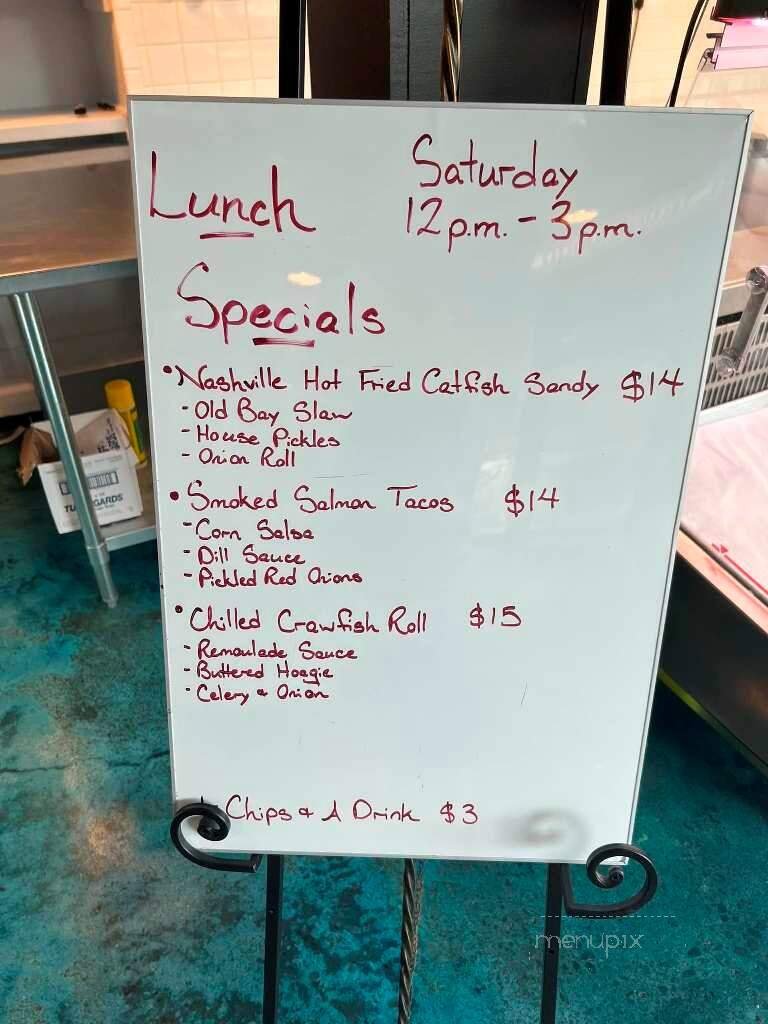 Lunch
Saturday
12 p.m. - 3 p.m.
Specials
• Nashville Hot Fried Catfish Sandy $14
- Old Bay Slaw
- House Pickles
- Onion Roll
• Smoked Salmon Tacos $14
- Corn Salsa
- Dill Sauce
- Pickled Red Onions
• Chilled Crawfish Roll $15
- Remoulade Sauce
- Buttered Hoagie
- Celery & Onion
Chips & A Drink $3
GARDS
menupix